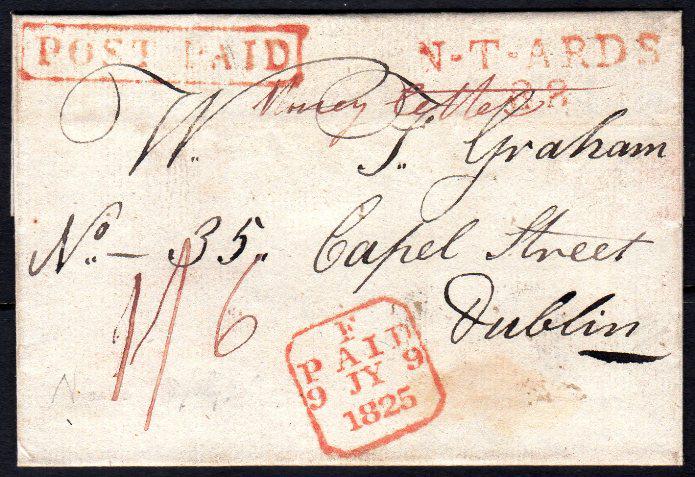 POST PAID
N-T-ARDS
98
Money Letter
W. T. Graham
No. - 35. Capel Street
Dublin
1/6
F
PAID
9 JY 9
1825